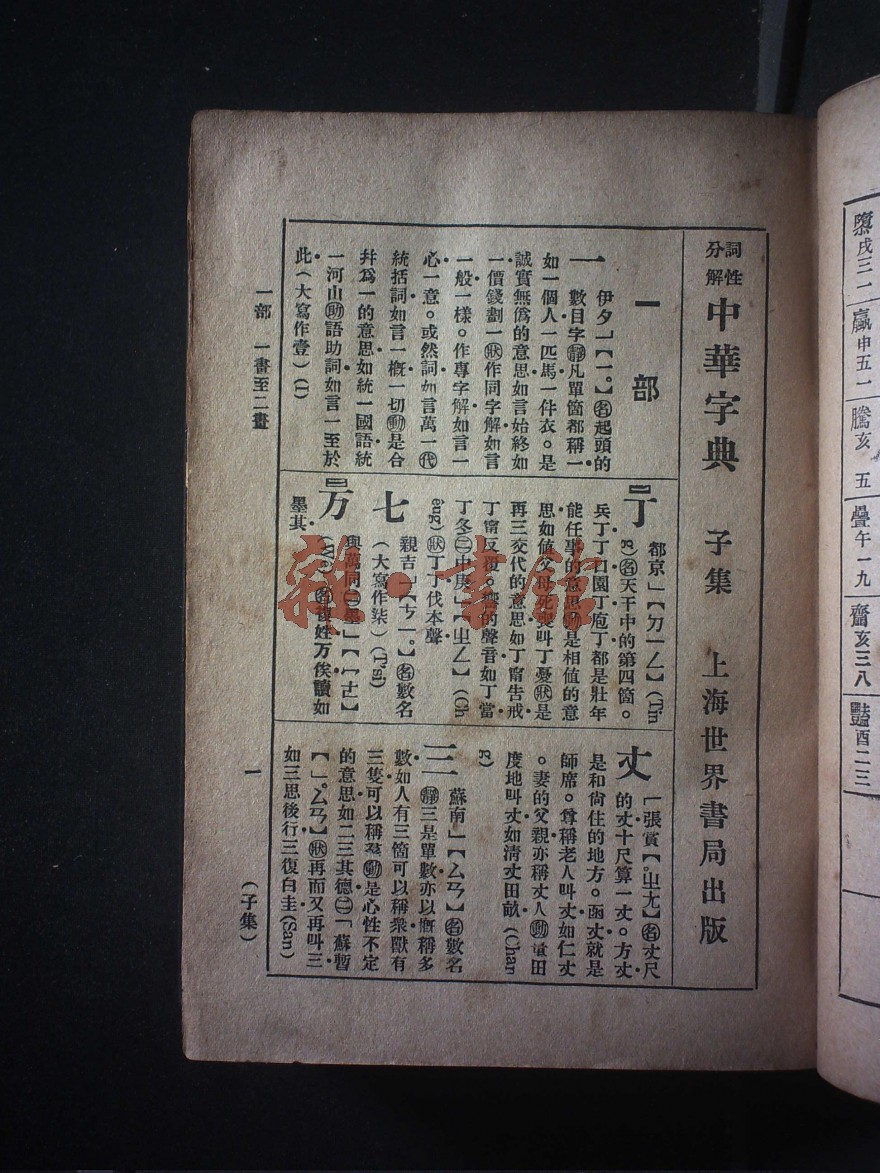 詞性分解 中華字典 子集 上海世界書局出版
一部
一 伊夕」【一。】㊔起頭的
數目字靜凡單箇都稱一
如一個人一匹馬一件衣。是
誠實無僞的意思如言始終如
一價錢劃一狀作同字解如言
一般一樣。作專字解如言一
心一意。或然詞如言萬一代
統括詞如言一槪一切動是合
幷爲一的意思如統一國語統
一河山助語助詞如言一至於
此(大寫作壹)(I)
丁 都京」【ㄉㄧㄥ】(Tin
g)名天干中的第四箇。
兵丁丁口園丁庖丁都是壯年
能任事的意思動是相値的意
思如値父母死喪叫丁憂狀是
再三交代的意思如丁甯告戒
丁甯反復。響的聲音如丁當
丁冬㊁中庚」【ㄓㄥ】(Ch
êng)狀丁丁伐木聲
七 親吉」【ㄘㄧ。】名數名
(大寫作柒)(Tsi)
万 與萬同㊁墨
名複姓万俟讀如
墨其
丈 【張賞【。ㄓㄤ】名丈尺
的丈十尺算一丈。方丈
是和尙住的地方。函丈就是
師席。尊稱老人叫丈如仁丈
。妻的父親亦稱丈人動量田
度地叫丈如淸丈田畝(Chan
g)
三 蘇南」【ㄙㄢ】名數名
靜三是單數亦以槪稱多
數如人有三箇可以稱衆獸有
三隻可以稱羣動是心性不定
的意思如二三其德㊁「蘇暫
【ㄙㄢ】狀再而又再叫三
如三思後行三復白圭(San)
一部 一畫至二畫
一
(子集)
雜·書館
隳戌三一
贏申五一
騰亥 五
疊午一九
齎亥三八
豔酉二三